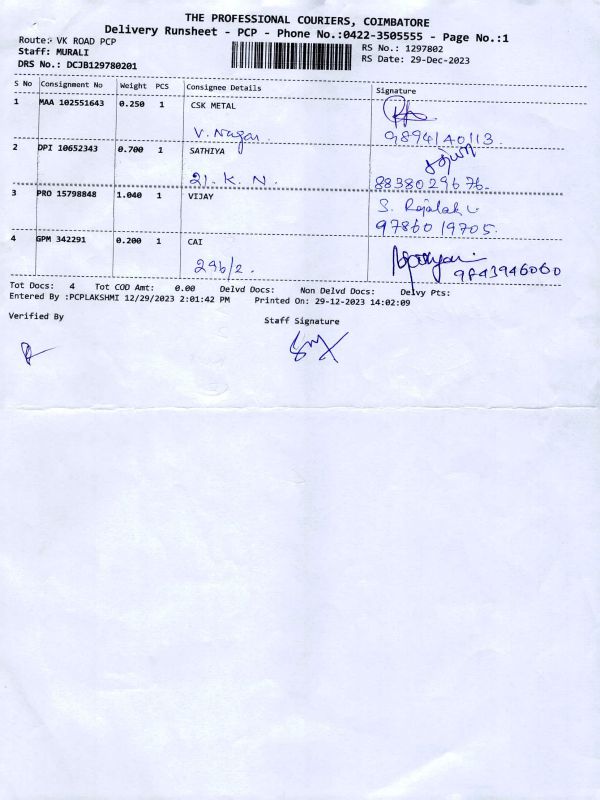 THE PROFESSIONAL COURIERS, COIMBATORE
Delivery Runsheet - PCP - Phone No.:0422-3505555 - Page No.:1
Route: VK ROAD PCP
RS No.: 1297802
Staff: MURALI
RS Date: 29-Dec-2023
DRS No.: DCJB129780201
S No Consignment No Weight PCS Consignee Details Signature
1 MAA 102551643 0.250 1 CSK METAL
V. Nagar. 9894140113.
2 DPI 10652343 0.700 1 SATHIYA
21. K. N. 8838029676.
3 PRO 15798848 1.040 1 VIJAY S.
9786019705.
4 GPM 342291 0.200 1 CAI
296/2. 9843946060
Tot Docs: 4 Tot COD Amt: 0.00 Delvd Docs: Non Delvd Docs: Delvy Pts:
Entered By :PCPLAKSHMI 12/29/2023 2:01:42 PM Printed On: 29-12-2023 14:02:09
Verified By Staff Signature